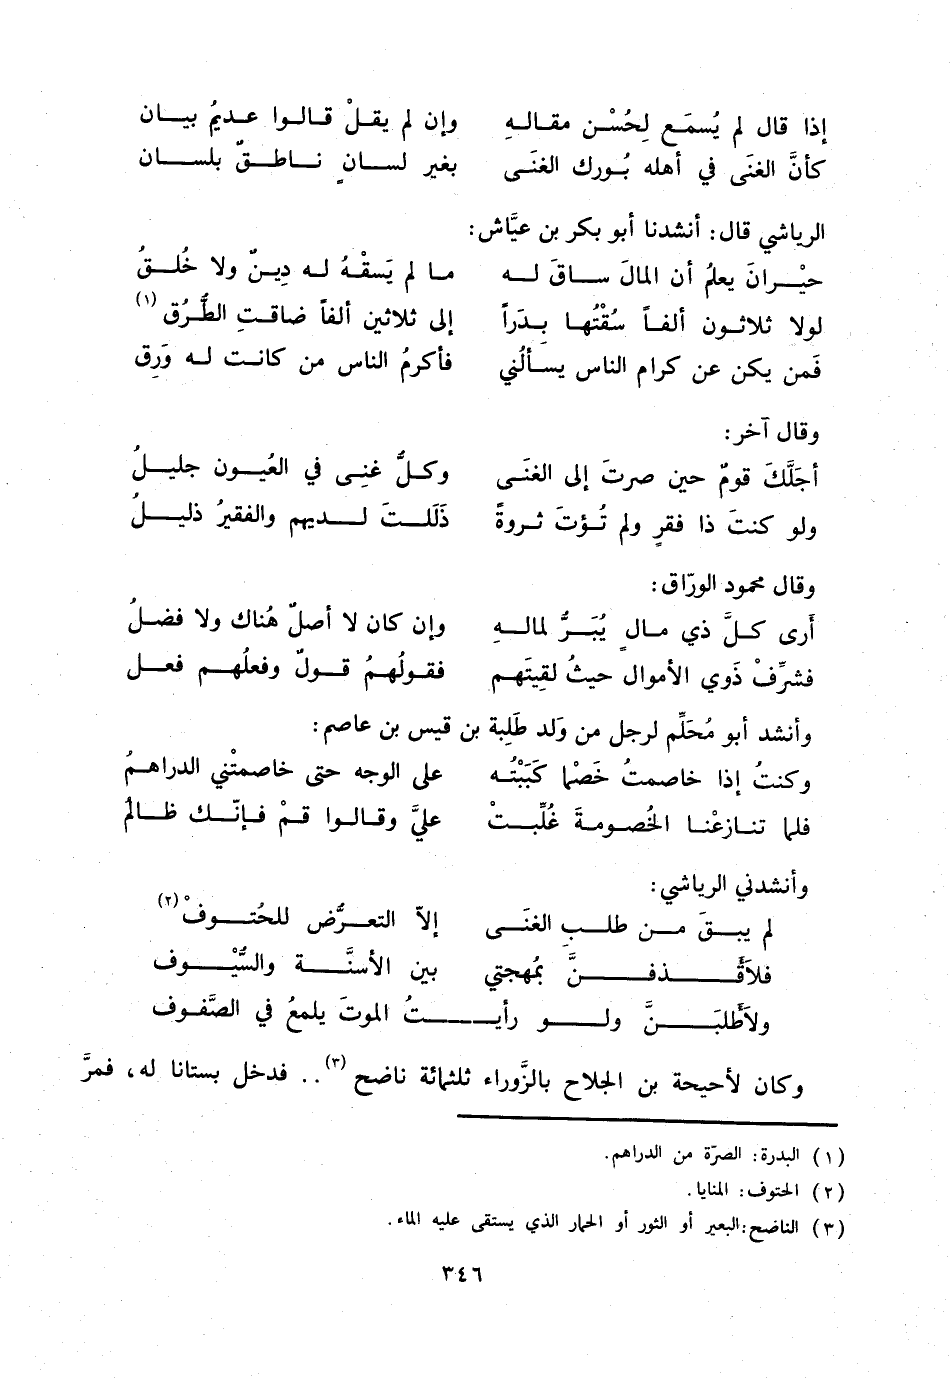 إذا قال لم يُسمَع لِحُسْن مقاله وإن لم يقلْ قالوا عديمُ بيان
كأنَّ الغنَى في أهله بُورك الغنَى بغير لسانٍ ناطقٌ بلسان
الرياشي قال: أنشدنا أبو بكر بن عيَّاش:
حيْرانَ يعلمُ أن المالَ ساقَ له ما لم يَسقْهُ له دِينٌ ولا خُلقُ
لولا ثلاثون ألفاً سُقْتُها بِدَراً إلى ثلاثين ألفاً ضاقتِ الطُّرُق (١)
فَمن يكن عن كرام الناس يسألُني فأكرمُ الناس من كانت له وَرِق
وقال آخر:
أجَلَّكَ قومٌ حين صرتَ إلى الغنَى وكلُّ غنِى في العُيون جليلُ
ولو كنتَ ذا فقرٍ ولم تُؤتَ ثروةً ذَلَلتَ لديهم والفقيرُ ذليلُ
وقال محمود الورّاق:
أَرى كلَّ ذي مالٍ يُبَرُّ لمالهِ وإن كان لا أصلٌ هُناك ولا فضلُ
فشرِّفْ ذَوي الأموال حيثُ لقِيتَهم فقولُهمُ قولٌ وفعلُهم فعل
وأنشد أبو مُحَلِّم لرجل من وَلد طَلِبة بن قيس بن عاصم:
وكنتُ إذا خاصمتُ خَصْما كَبَبْتُه على الوجه حتى خاصمتْني الدراهمُ
فلما تنازعْنا الخُصومةَ غُلِّبتْ عليَّ وقالوا قمْ فإنّك ظالمُ
وأنشدني الرياشي:
لم يبقَ من طلبِ الغنَى إلاّ التعرُّض للحُتوفْ (٢)
فلأَقذفنَّ بمُهجتي بين الأسنَّة والسُّيوف
ولأَطلبَنَّ ولو رأيتُ الموتَ يلمعُ في الصَّفوف
وكان لأحيحة بن الجلاح بالزَّوراء ثلثمائة ناضح (٣) .. فدخل بستانا له، فمرَّ
(١) البدرة: الصرّة من الدراهم.
(٢) الحتوف: المنايا.
(٣) الناضح: البعير أو الثور أو الحمار الذي يستقى عليه الماء.
٣٤٦